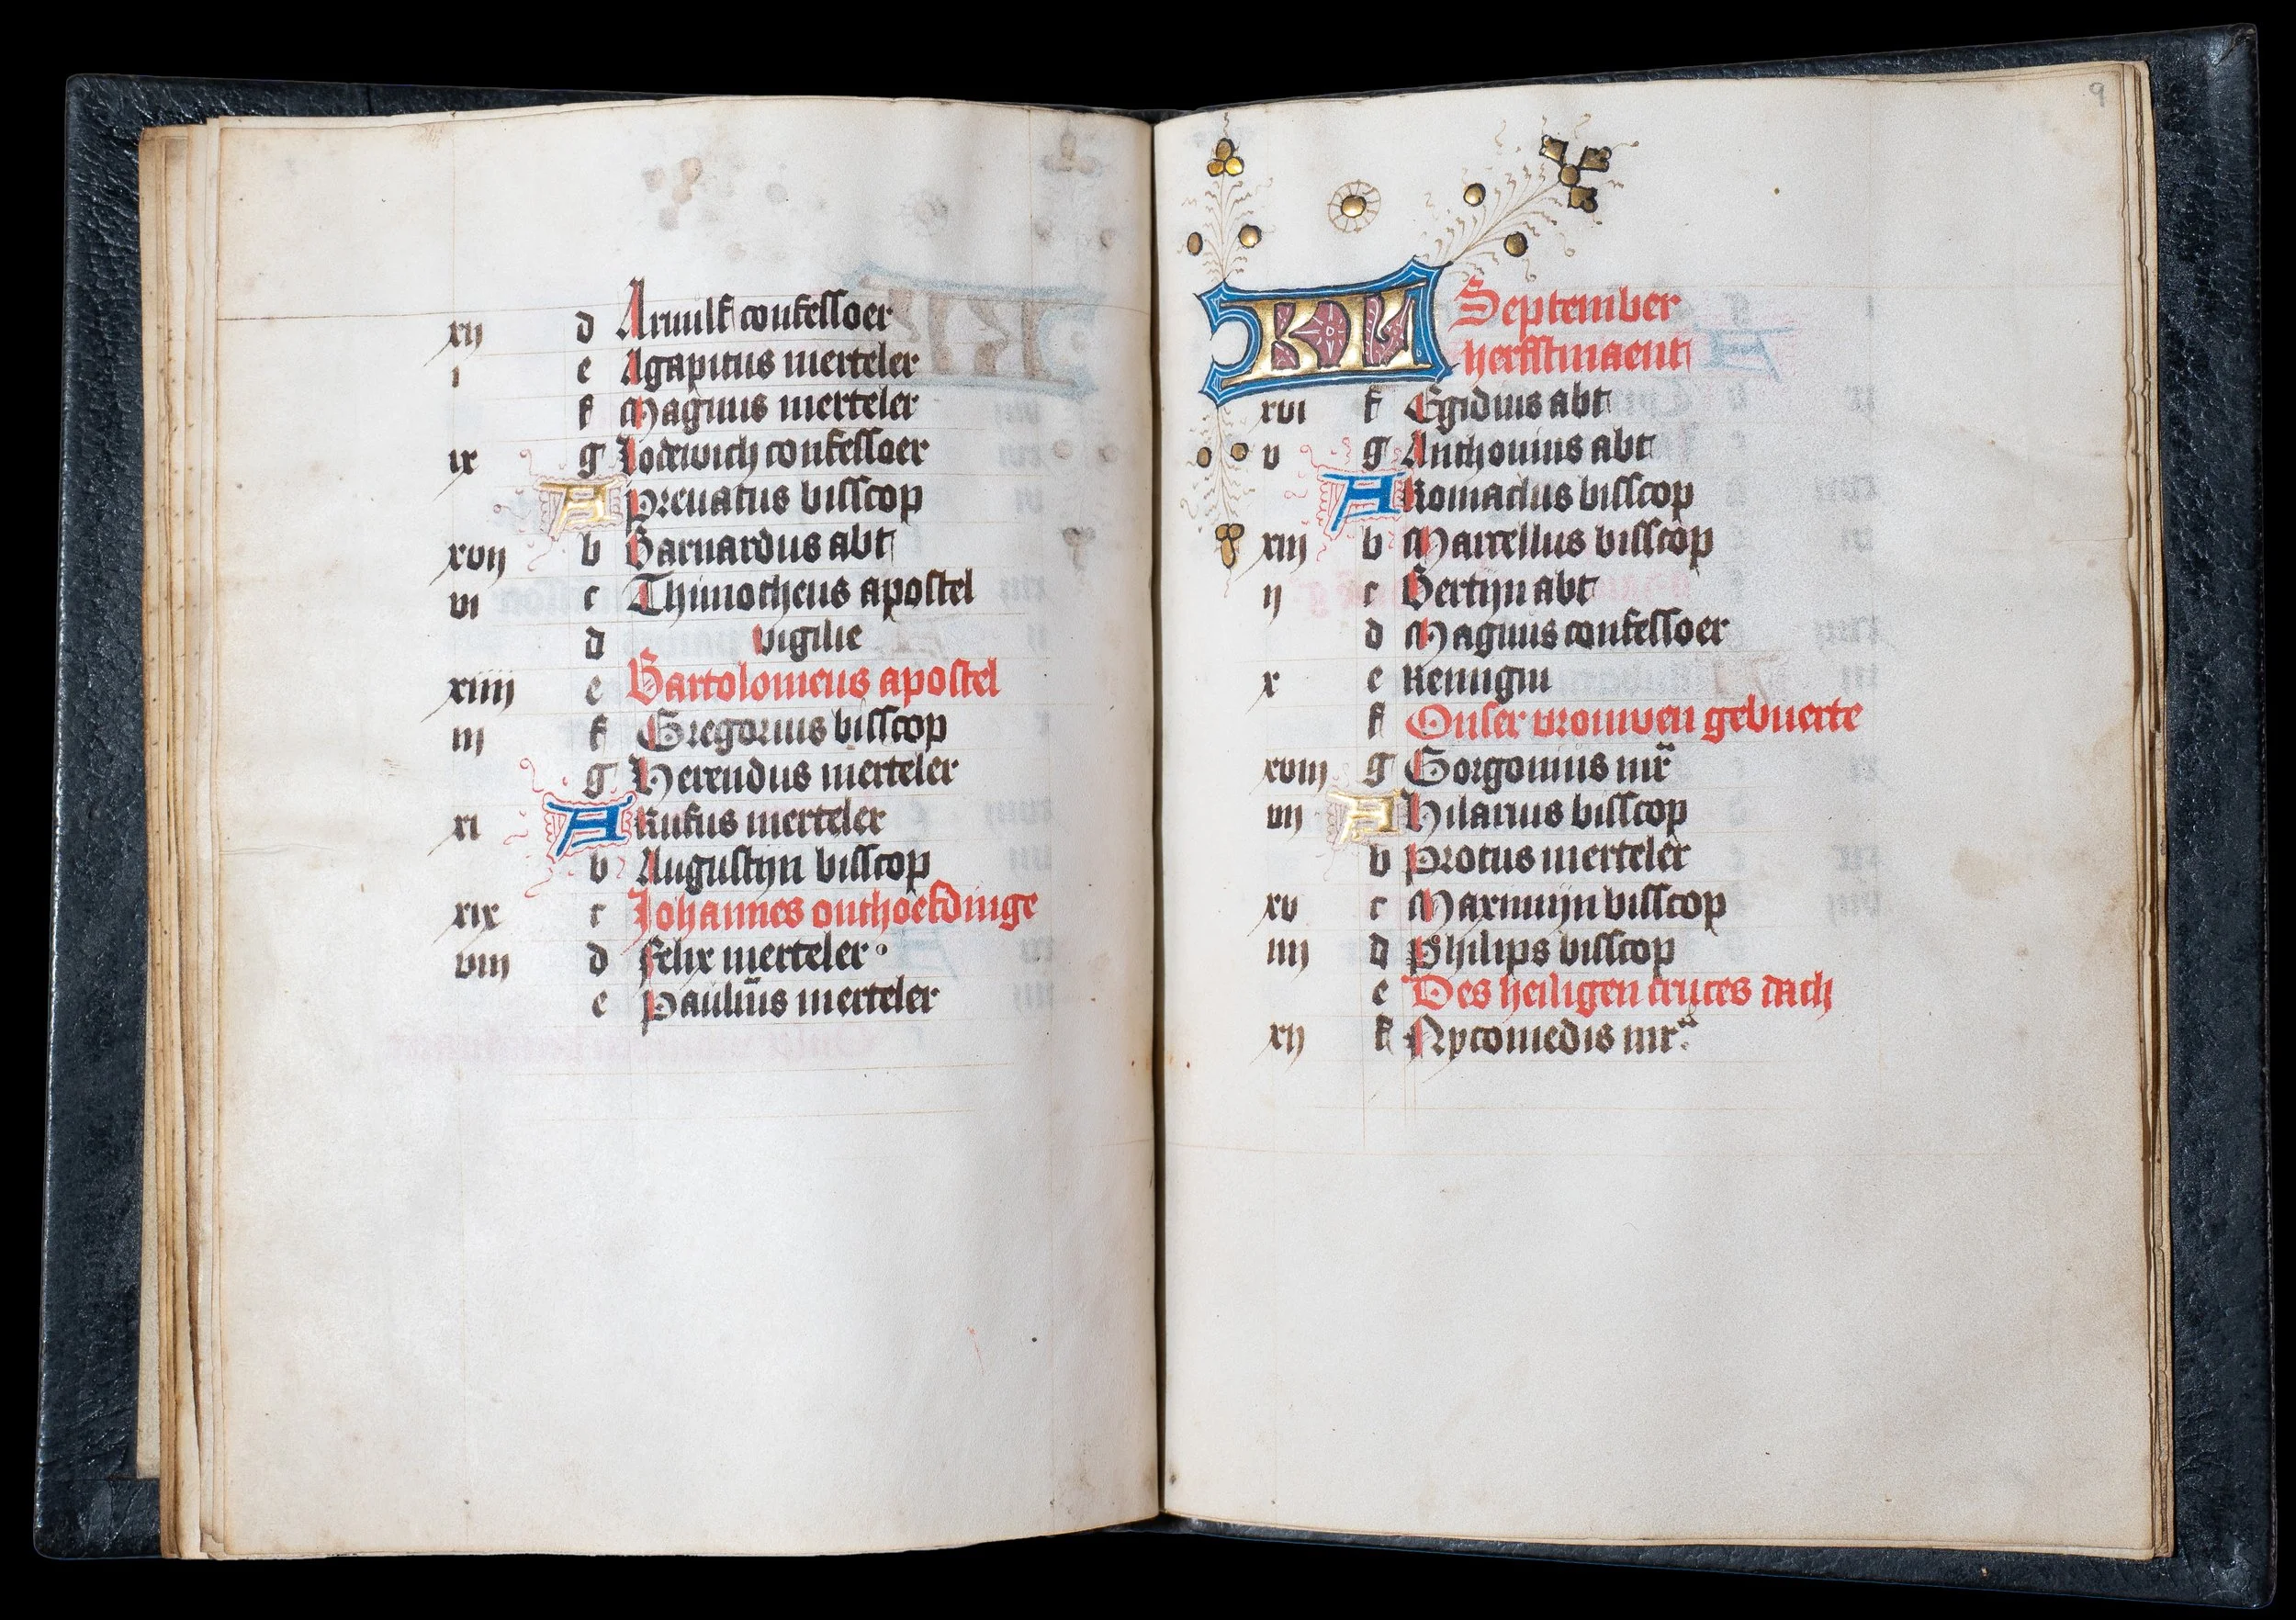 xij d Arnulf confessoer
i e Agapitus merteler
f Magnus merteler
ix g Lodewich confessoer
A Prenatus bisscop
xvij b Barnardus abt
vi c Thimotheus apostel
d vigilie
xiiij e Bartolomeus apostel
iij f Gregorius bisscop
g Herendus merteler
xi A Rufus merteler
b Augustijn bisscop
xix c Johannes onthoefdinge
viij d Felix merteler
e Paulinus merteler
9
KL September
herfstmaent
xvi f Egidius abt
v g Anthonius abt
A Romaclus bisscop
xiij b Marcellus bisscop
ij c Bertijn abt
d Magnus confessoer
x e Remigin
f Onser vrouwen gebuerte
xviij g Gorgonius mr
vij A Hilarius bisscop
b Protus merteler
xv c Maxmijn bisscop
iiij d Philips bisscop
e Des heiligen cruces dach
xij f Nycomedis mr